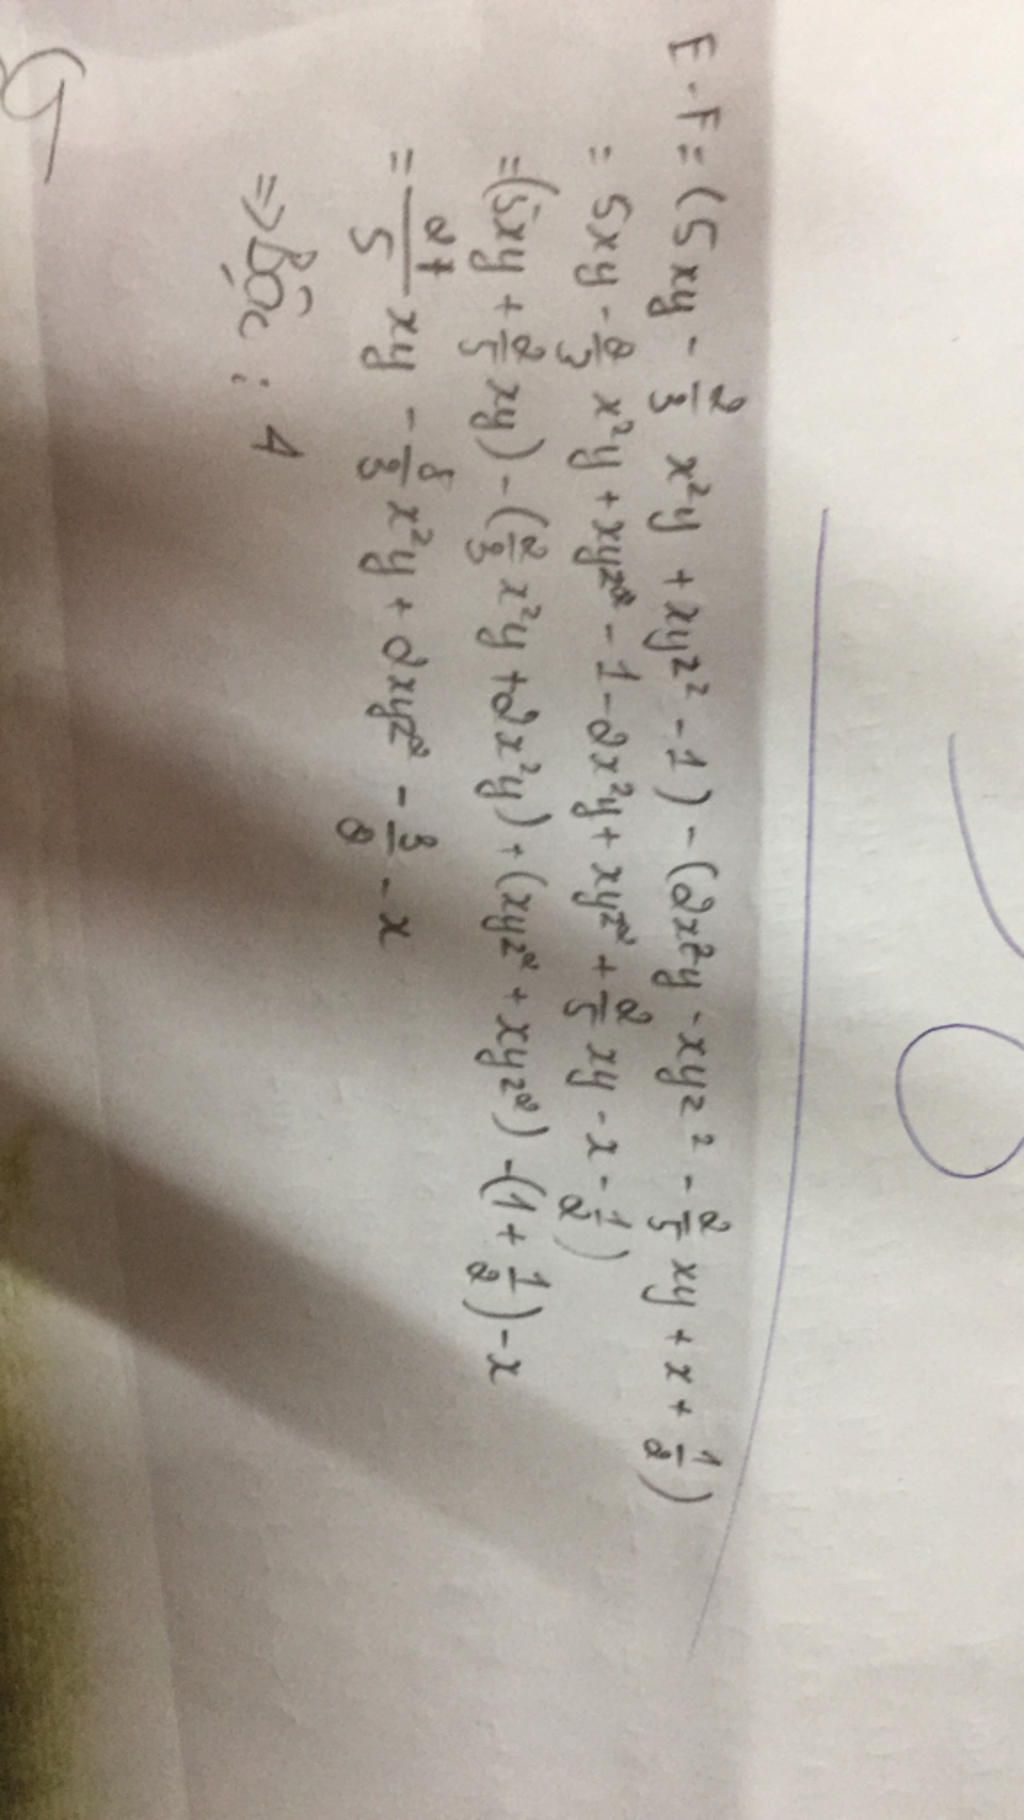 E - F = (5xy - 2/3 x²y + xyz² - 1) - (2x²y - xyz² - 2/5 xy + x + 1/2)
= 5xy - 2/3 x²y + xyz² - 1 - 2x²y + xyz² + 2/5 xy - x - 1/2)
= (5xy + 2/5 xy) - (2/3 x²y + 2x²y) + (xyz² + xyz²) - (1 + 1/2) - x
= 27/5 xy - 8/3 x²y + 2xyz² - 3/2 - x
=> Bậc : 4